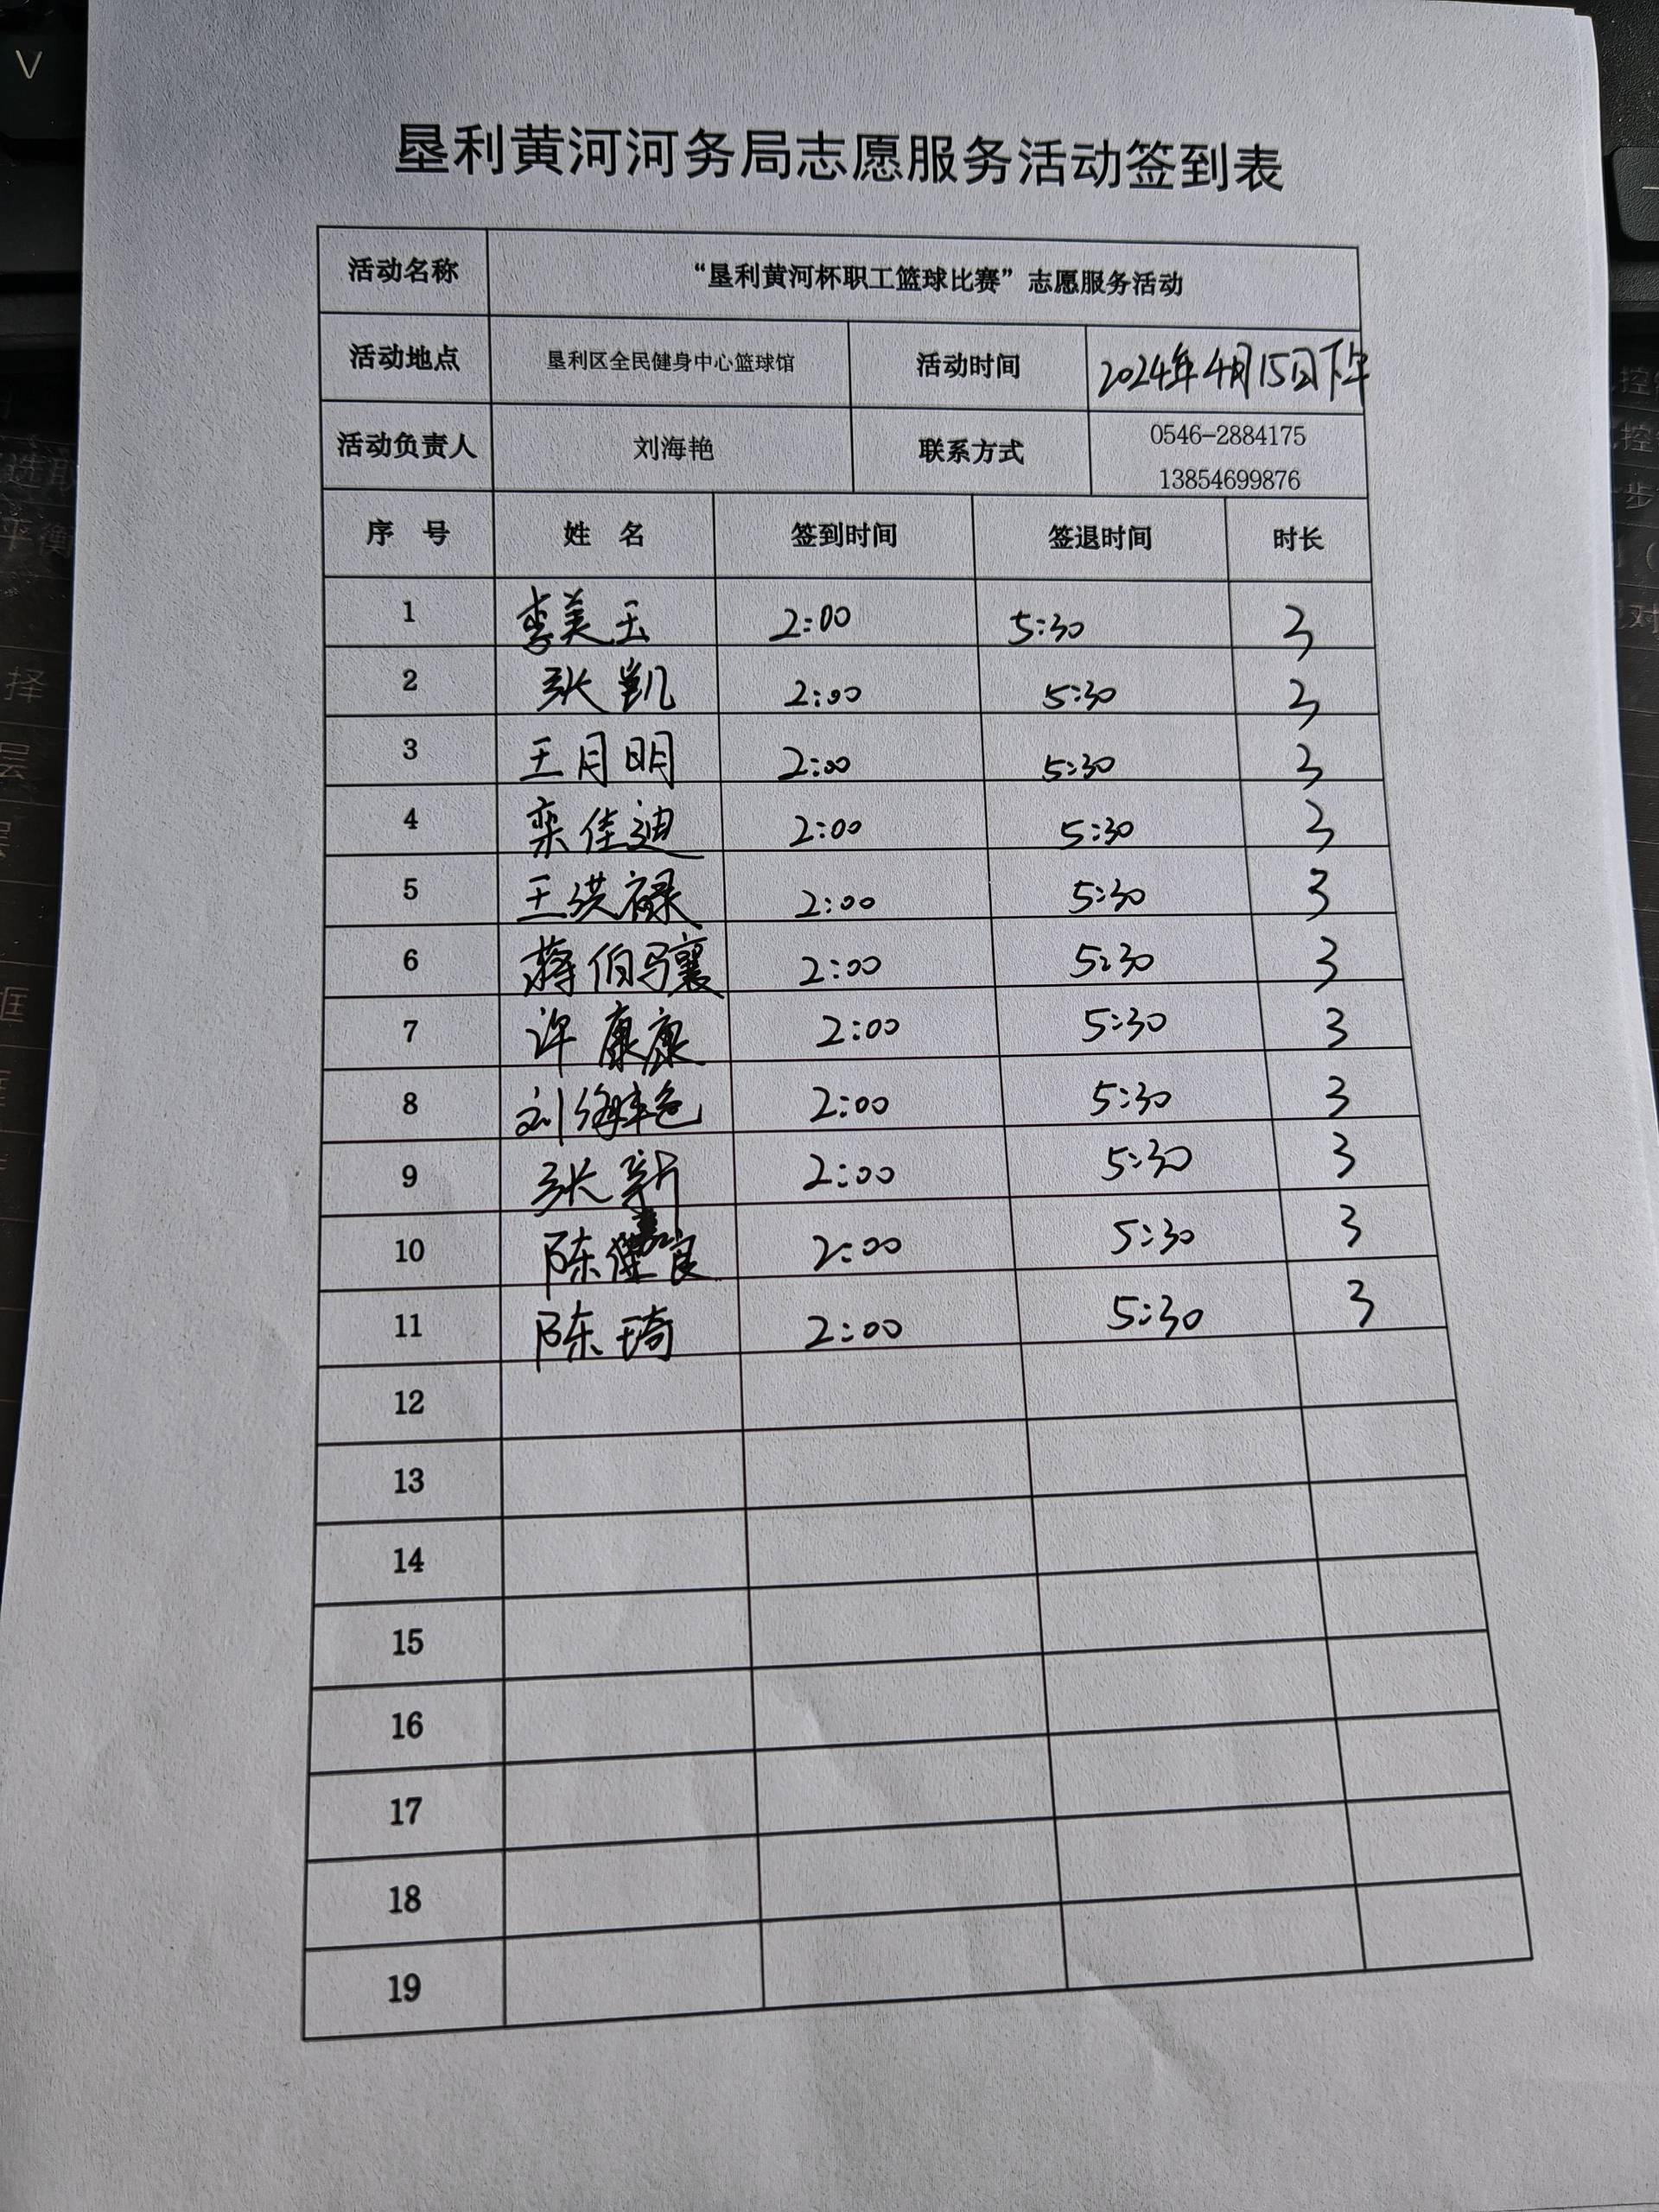 垦利黄河河务局志愿服务活动签到表
活动名称 “垦利黄河杯职工篮球比赛”志愿服务活动
活动地点 垦利区全民健身中心篮球馆 活动时间 2024年4月15日下午
活动负责人 刘海艳 联系方式 0546-2884175
13854699876
序 号 姓 名 签到时间 签退时间 时长
1 李美玉 2:00 5:30 3
2 张凯 2:00 5:30 3
3 王月明 2:00 5:30 3
4 栾佳迪 2:00 5:30 3
5 王洪禄 2:00 5:30 3
6 蒋伯骧 2:00 5:30 3
7 许康康 2:00 5:30 3
8 刘海艳 2:00 5:30 3
9 张新 2:00 5:30 3
10 陈 2:00 5:30 3
11 陈琦 2:00 5:30 3
12
13
14
15
16
17
18
19